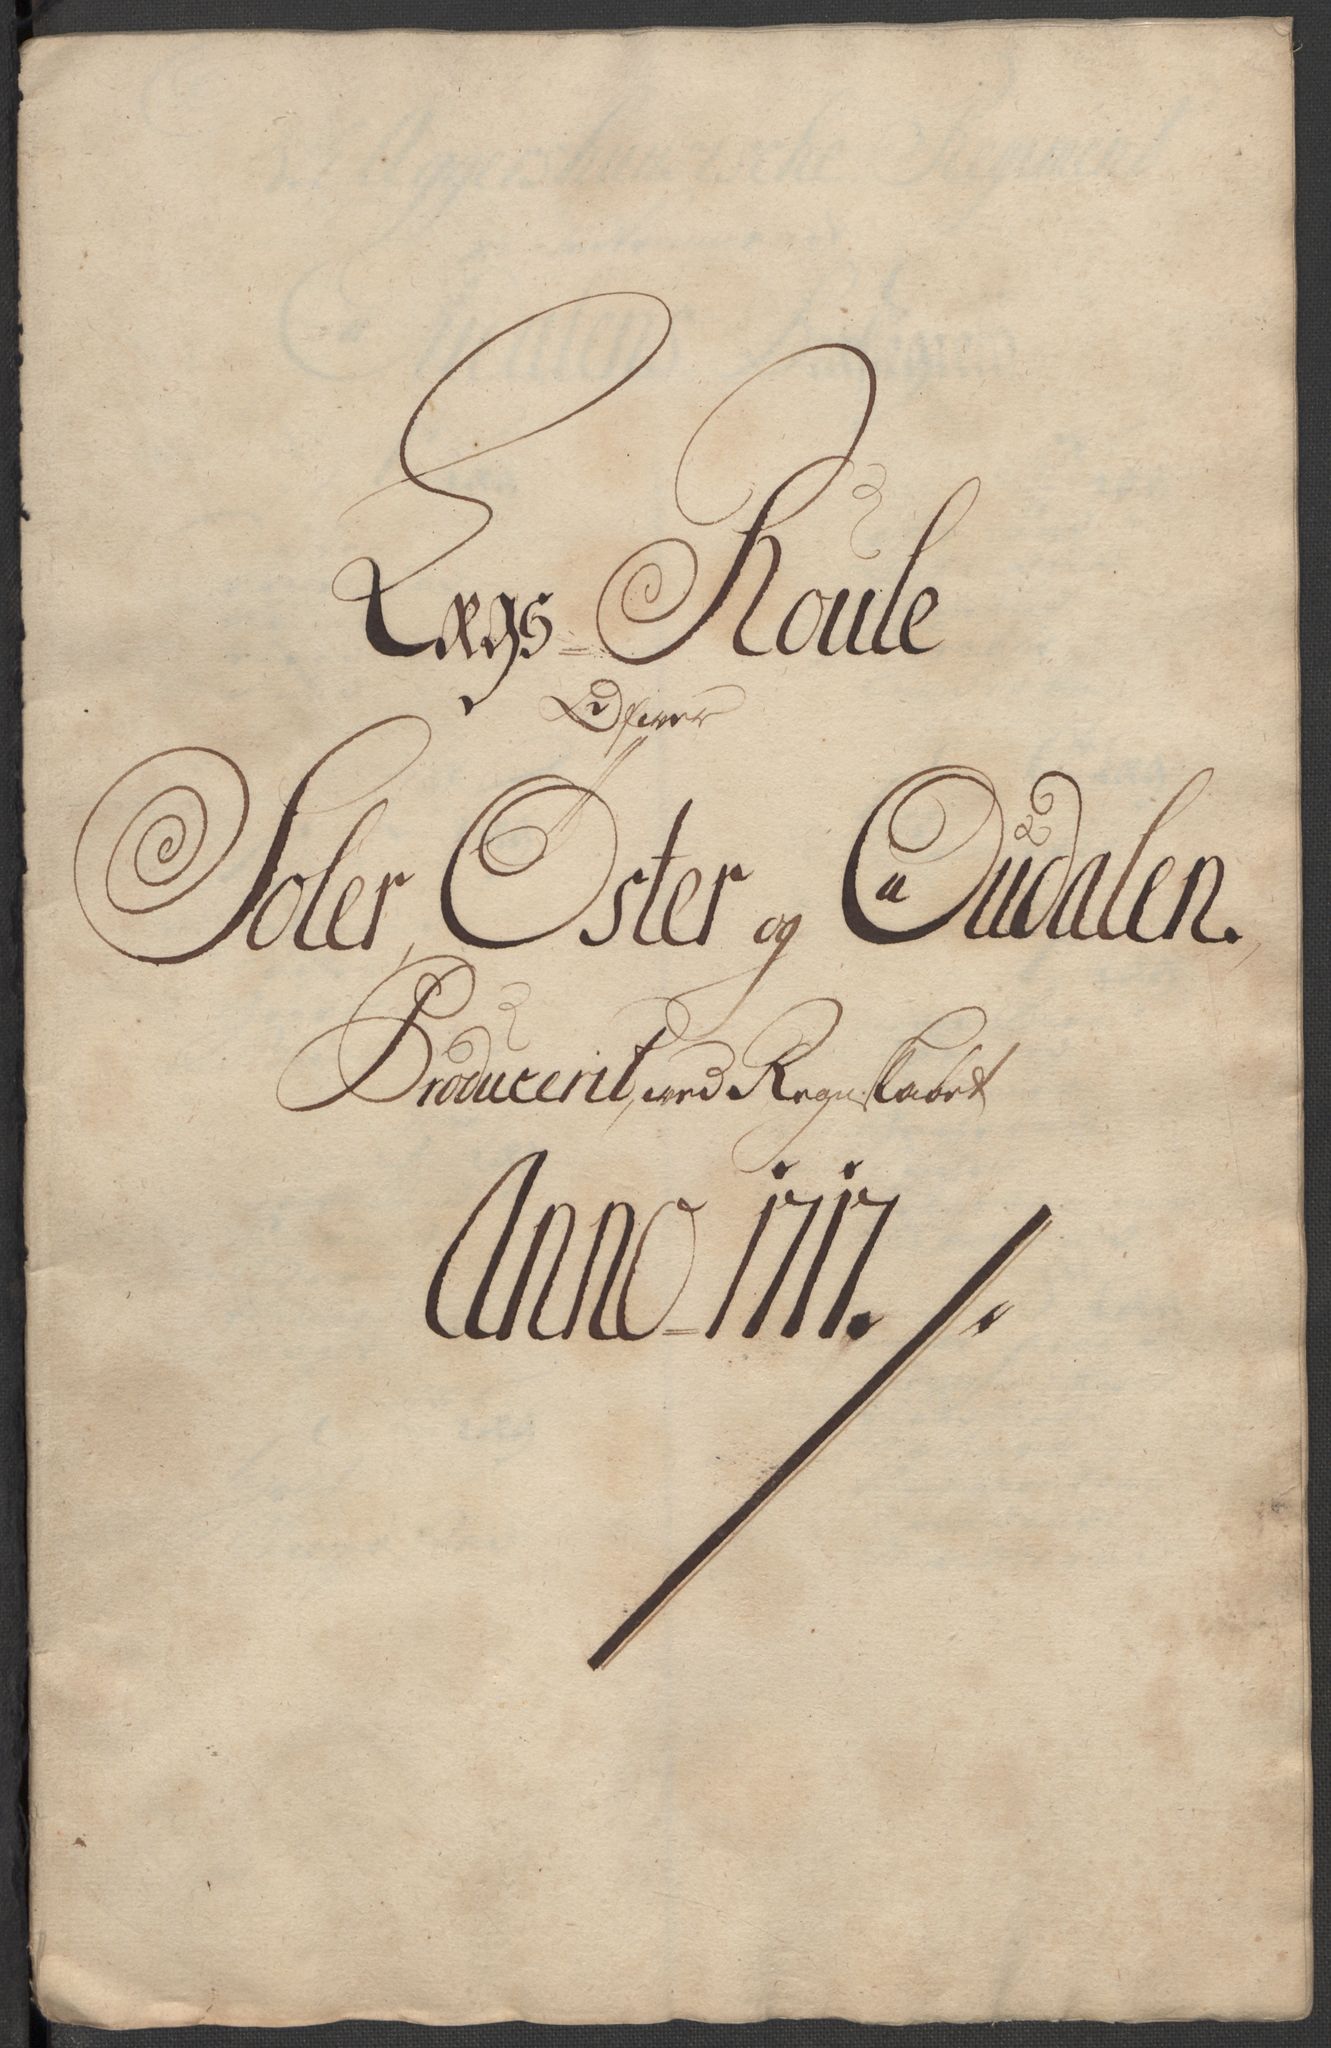 Lægs-Roule
Ofver
Soler, Öster og Oudalen.
Producerit, ved Regnskabet
Anno 1717.